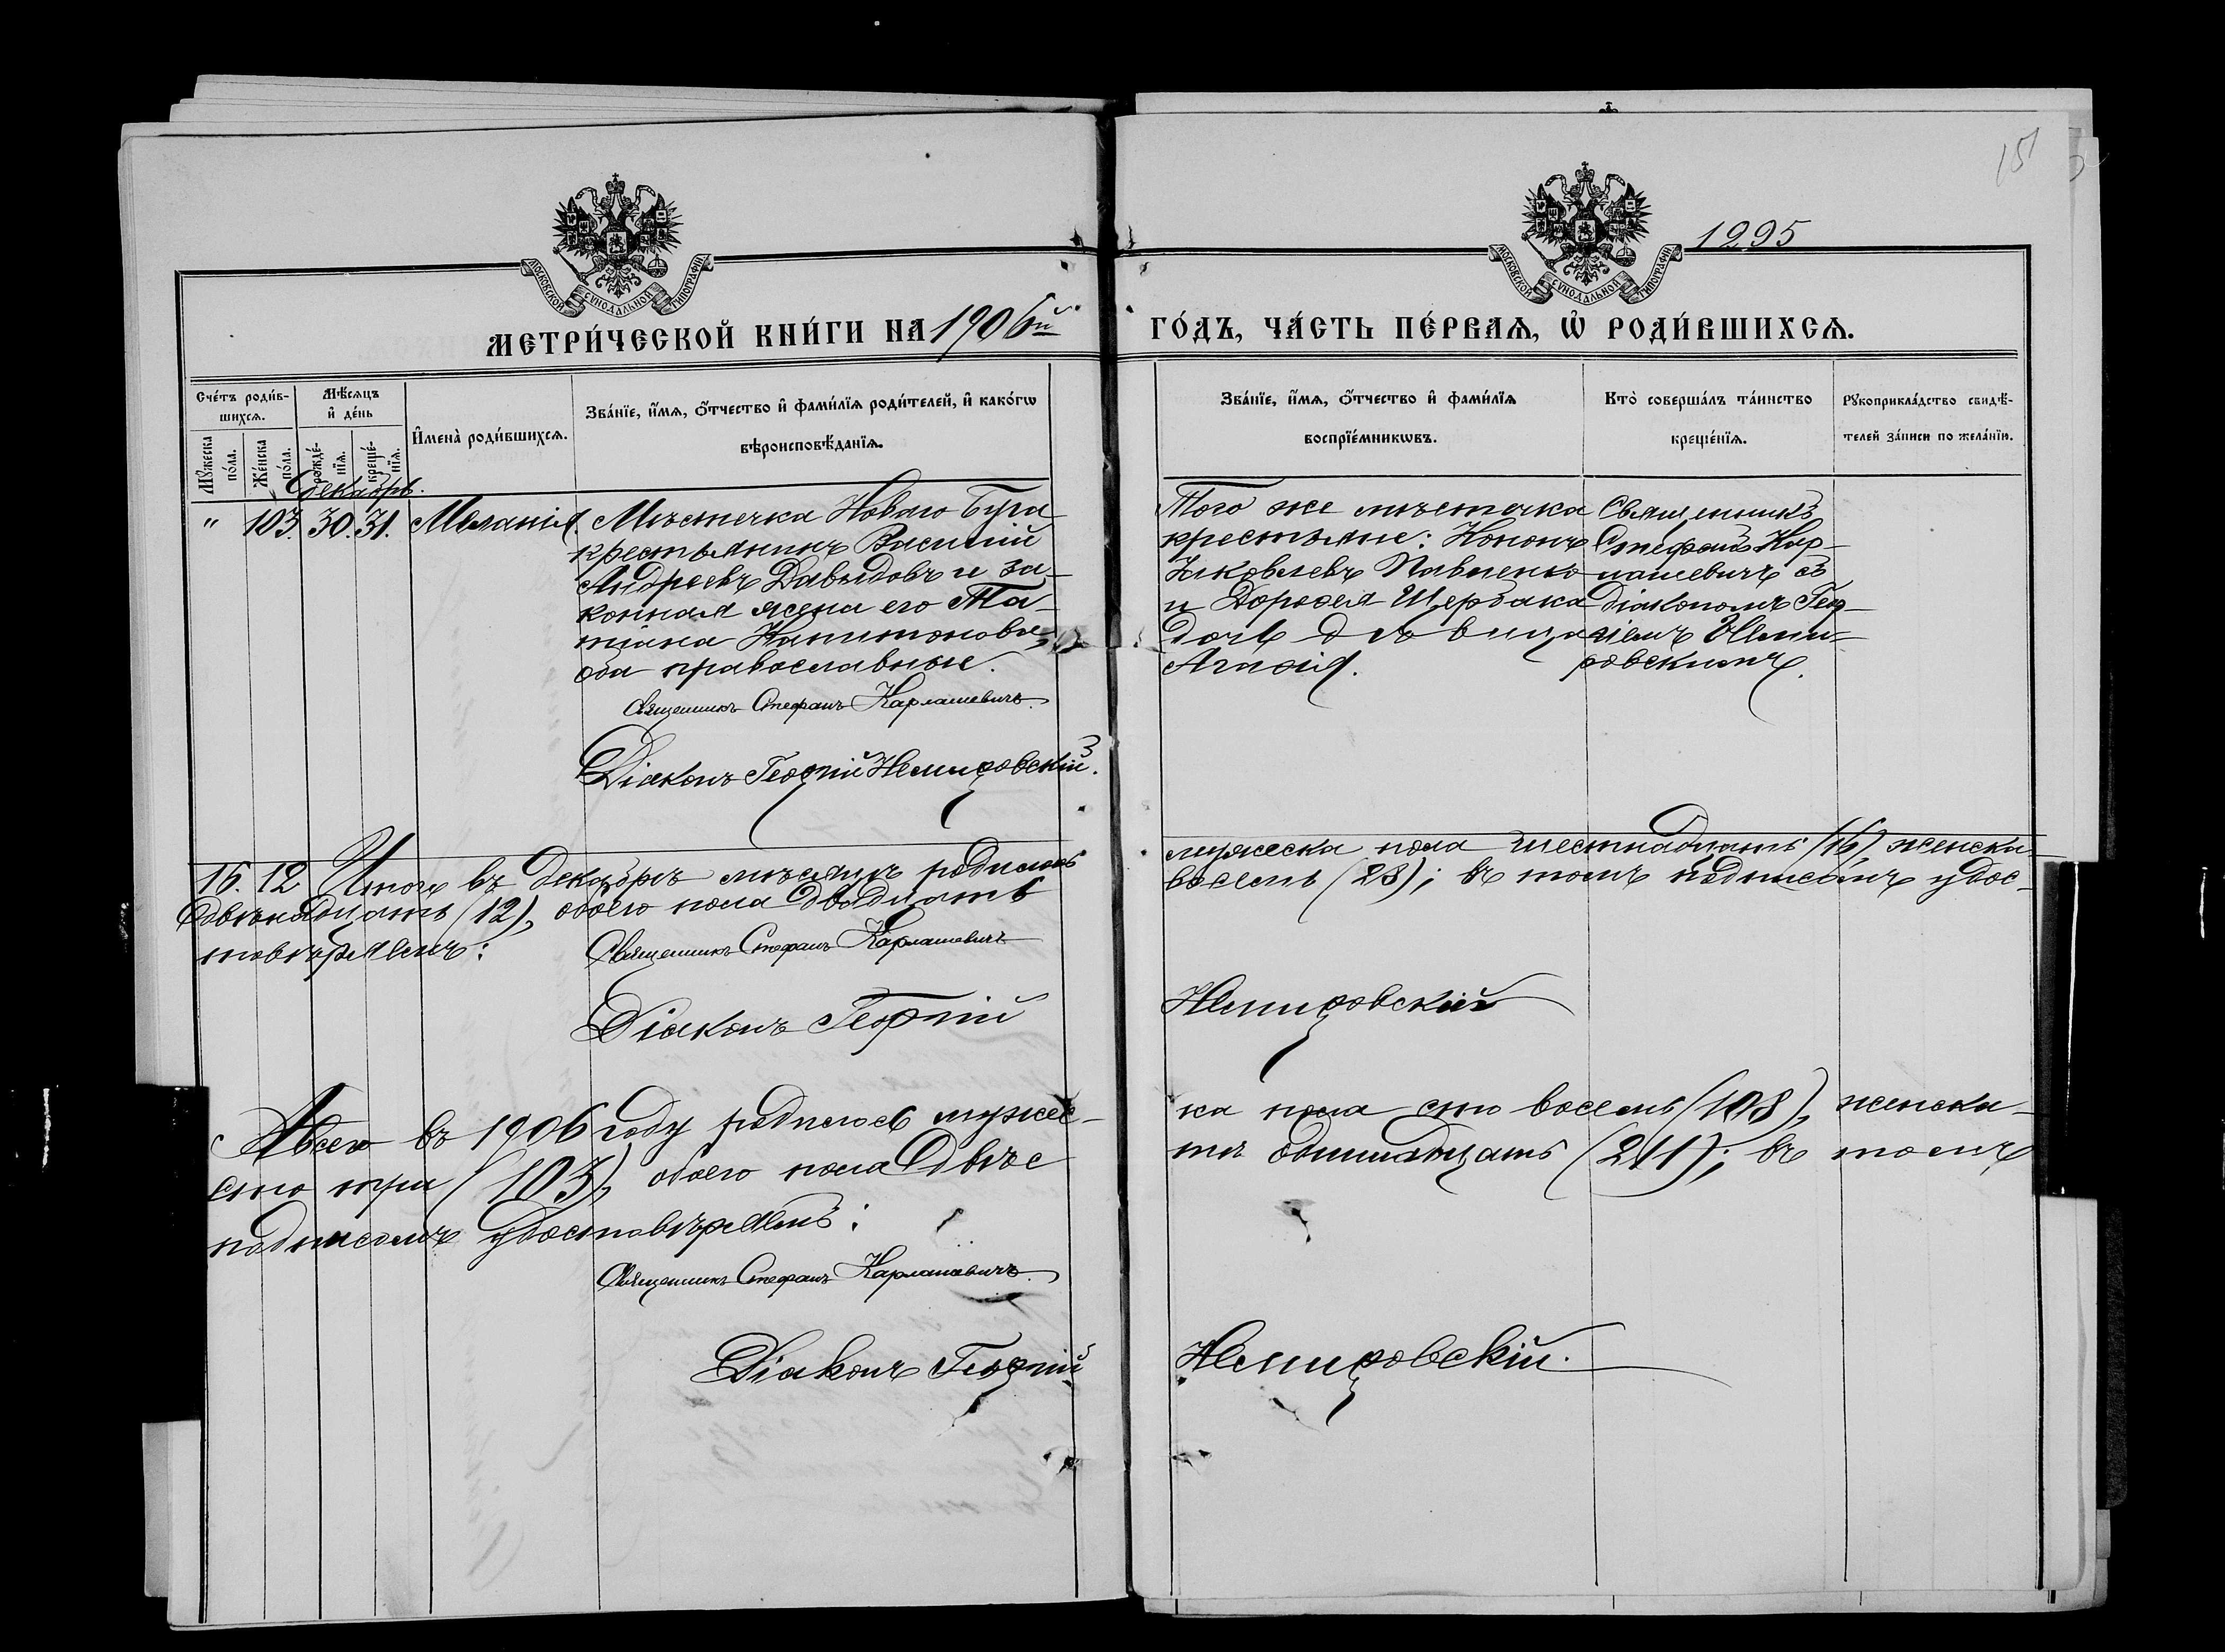 151
1295
МОСКОВСКОЙ СѴНОДАЛЬНОЙ ТИПОГРАФІИ
МОСКОВСКОЙ СѴНОДАЛЬНОЙ ТИПОГРАФІИ
МЕТРИ́ЧЕСКОЙ КНИ́ГИ НА 1906й ГО́ДЪ, ЧА́СТЬ ПЕ́РВАѦ, Ѡ҆ РОДИ́ВШИХСѦ.
Сче́тъ роди́в-
шихсѧ.
Мꙋ́жеска по́ла.
Же́нска по́ла.
Мѣ́сѧцъ
и҆ де́нь
рожде́-
нїѧ.
креще́-
нїѧ.
И҆мена̀ роди́вшихсѧ.
Зва́нїе, и҆́мѧ, ѻ҆́тчество и҆ фами́лїѧ роди́телей, и҆ како́гѡ
вѣроисповѣ́данїѧ.
Зва́нїе, и҆́мѧ, ѻ҆́тчество и҆ фами́лїѧ
воспрїе́мникѡвъ.
Кто̀ соверша́лъ та́инство
креще́нїѧ.
Рꙋкоприкла́дство свидѣ́-
телей за́писи по жела́нїю.
Декабрь.
" 103. 30. 31. Меланія.
Мѣстечка Новаго Буга
крестьянинъ Василій
Андреевъ Давыдовъ и за-
конная жена его Та-
тіана Капитонова
оба православные.
Священникъ Стефанъ Карлашевичъ.
Діаконъ Георгій Немировскій.
Того же мѣстечка
крестьяне: Кононъ
Іаковлевъ Павленко
и Дорофея Щербака
дочь дѣвица
Агафія.
Священникъ
Стефанъ Кар-
лашевичъ съ
діакономъ Геор-
гіемъ Неми-
ровскимъ.
16. 12 Итого въ декабрѣ мѣсяцѣ родилось
мужеска пола шестнадцать (16), женска
двѣнадцать (12), обоего пола двадцать
восемь (28); въ томъ подписомъ удос-
товѣряемъ:
Священникъ Стефанъ Карлашевичъ
Діаконъ Георгій Немировскій
А всего въ 1906 году родилось мужес-
ка пола сто восемь (108), женска
сто три (103), обоего пола двѣс
ти одиннадцать (211); въ томъ
подписомъ удостовѣряемъ:
Священникъ Стефанъ Карлашевичъ.
Діаконъ Георгій Немировскій.